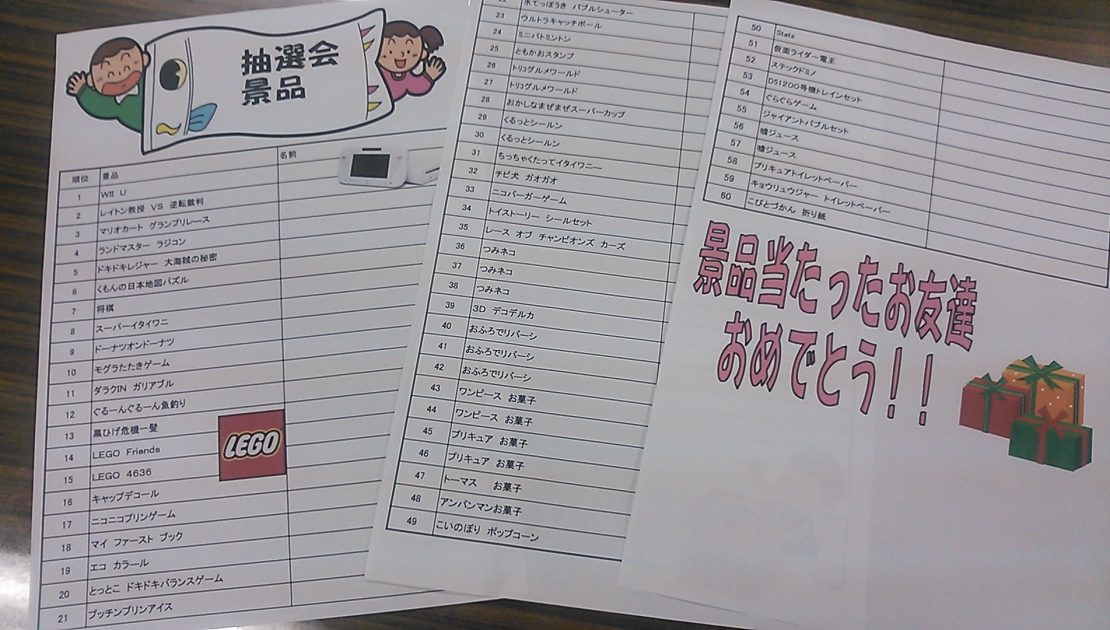 抽選会
景品
順位 景品 名前
1 WII U
2 レイトン教授 VS 逆転裁判
3 マリオカート グランプリレース
4 ランドマスター ラジコン
5 ドキドキレジャー 大海賊の秘密
6 くもんの日本地図パズル
7 将棋
8 スーパーイタイワニ
9 ドーナツオンドーナツ
10 モグラたたきゲーム
11 ダラクIN ガリアブル
12 ぐるーんぐるーん魚釣り
13 黒ひげ危機一髪
14 LEGO Friends
15 LEGO 4636
LEGO
16 キャップデコール
17 ニコニコプリンゲーム
18 マイ ファースト ブック
19 エコ カラール
20 とっとこ ドキドキバランスゲーム
21 プッチンプリンアイス
22 水てっぽうき バブルシューター
23 ウルトラキャッチボール
24 ミニバトミントン
25 ともかおスタンプ
26 トリコグルメワールド
27 トリコグルメワールド
28 おかしなまぜまぜスーパーカップ
29 くるっとシールン
30 くるっとシールン
31 ちっちゃくたってイタイワニー
32 チビ犬 ガオガオ
33 ニコバーガーゲーム
34 トイストーリー シールセット
35 レース オブ チャンピオンズ カーズ
36 つみネコ
37 つみネコ
38 つみネコ
39 3D デコデルカ
40 おふろでリバーシ
41 おふろでリバーシ
42 おふろでリバーシ
43 ワンピース お菓子
44 ワンピース お菓子
45 プリキュア お菓子
46 プリキュア お菓子
47 トーマス お菓子
48 アンパンマンお菓子
49 こいのぼり ポップコーン
50 Stats
51 仮面ライダー電王
52 ステックドミノ
53 D51200号機トレインセット
54 ぐらぐらゲーム
55 ジャイアントバブルセット
56 嘘ジュース
57 嘘ジュース
58 プリキュアトイレットペーパー
59 キョウリュウジャー トイレットペーパー
60 こびとづかん 折り紙
景品当たったお友達
おめでとう!!